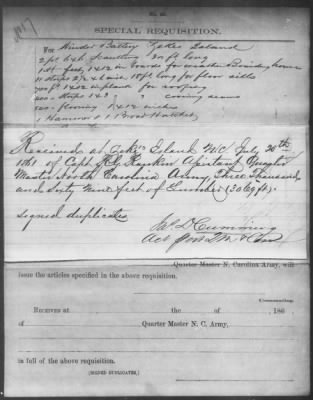 No. 40.
SPECIAL REQUISITION.
For Winder Battery Zekes Island
2 pt 6x6 Scantling 20 ft long
1 st feet, 1x12 in boards for weather Boarding house
11 Strips 2/2 x 6 inch 18 ft long for floor sills
700 ft 1x12 in plank for roofing
200 Strips 1x3 " " covering seams
500 flooring 1x12 inches
1 Hammer & 1 Broad Hatchet
Received at Zeke's Island N.C. July 20th
1861 of Capt. R.G. Rankin Assistant Quarter
Master North Carolina Army, Three Thousand
and Sixty Nine feet of Lumber (3069 ft).
Signed duplicates
Jas D Cumming
Act
Quarter Master N. Carolina Army, will
issue the articles specified in the above requisition.
Commanding.
RECEIVED AT the of , 186 .
of Quarter Master N. C. Army,
in full of the above requisition.
(SIGNED DUPLICATES.)